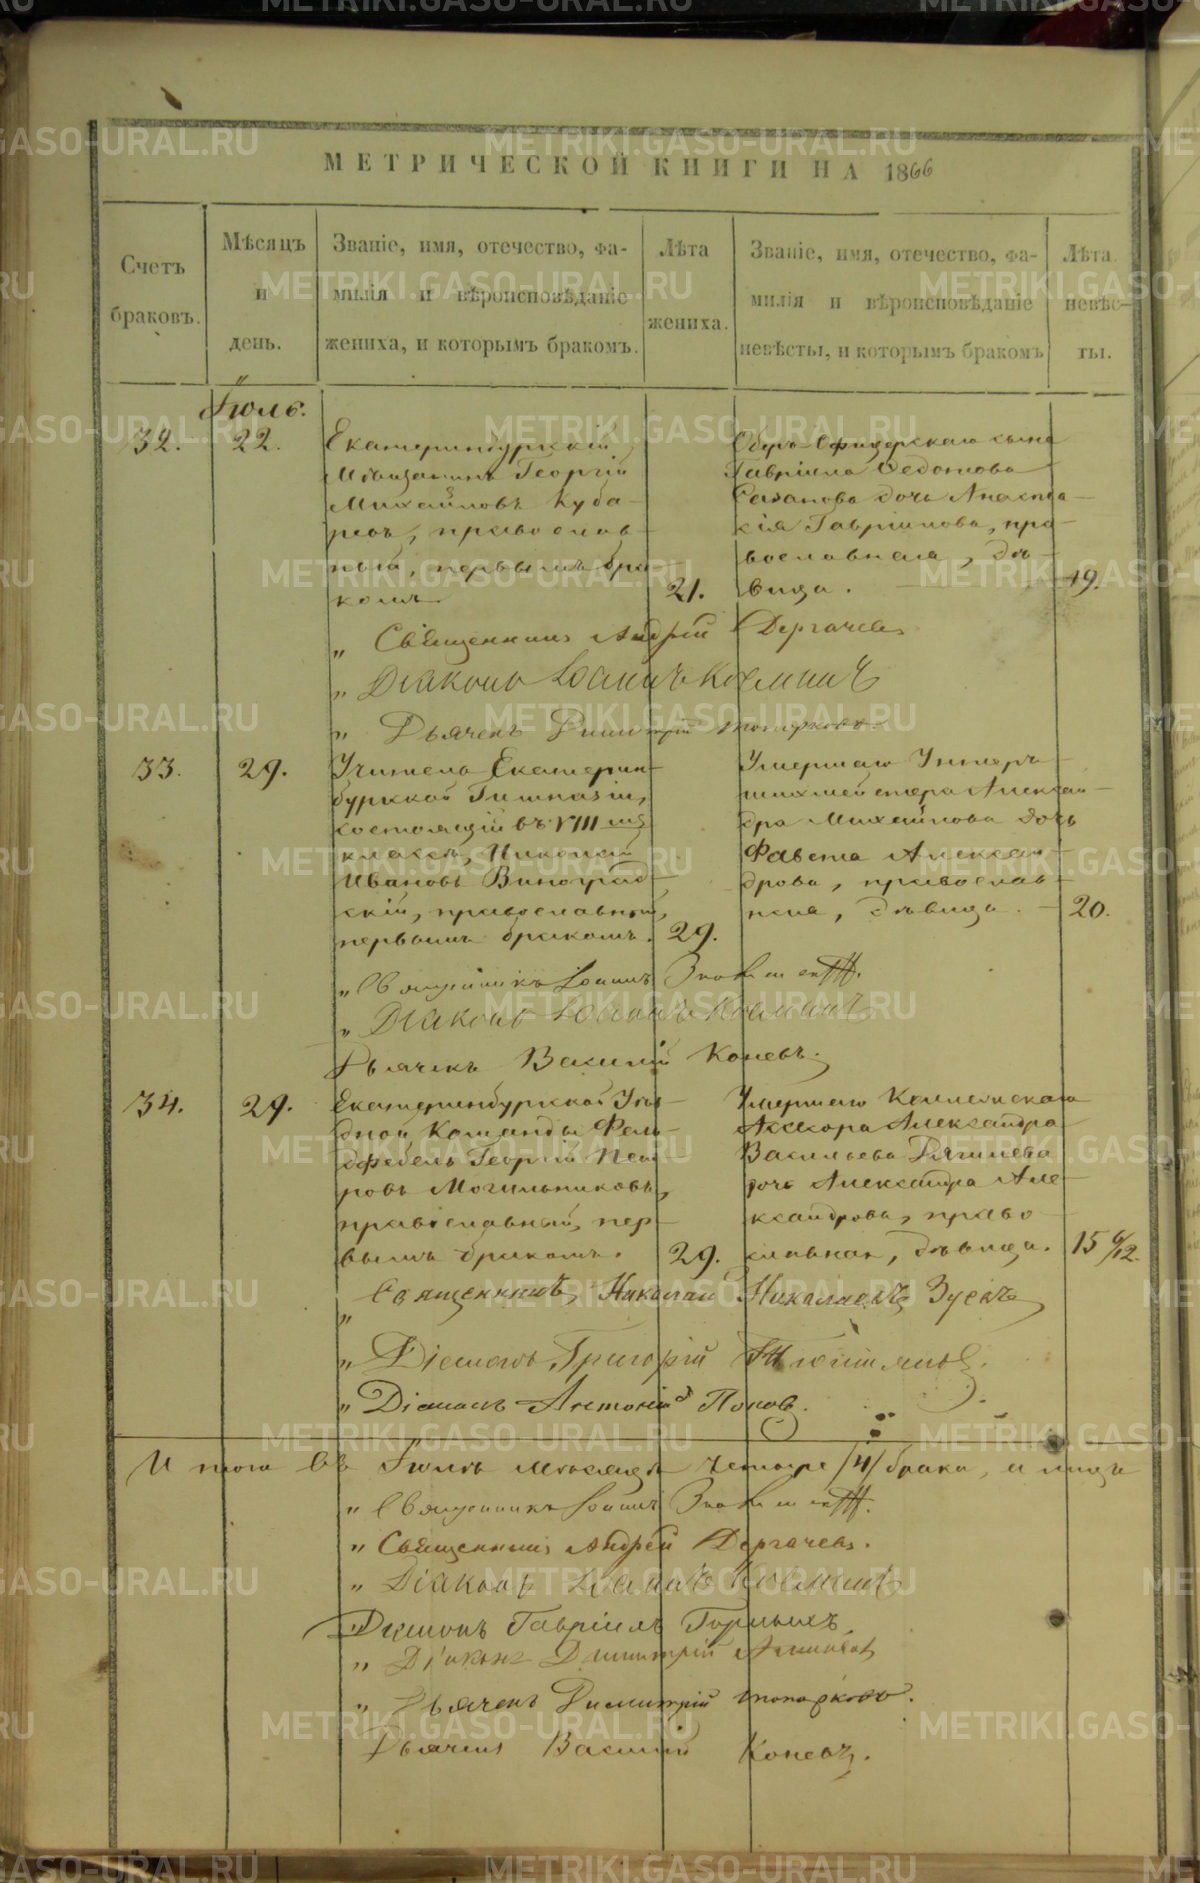 МЕТРИЧЕСКОЙ КНИГИ НА 1866
Счетъ браковъ.
Мѣсяцъ и день.
Званіе, имя, отечество, фа-
милія и вѣроисповѣданіе
жениха, и которымъ бракомъ.
Лѣта жениха.
Званіе, имя, отечество, фа-
милія и вѣроисповѣданіе
невѣсты, и которымъ бракомъ
Лѣта невѣс-
ты.
Іюль.
32.
22.
Екатеринбургскій
Мѣщанинъ Георгій
Михайловъ Куба-
рев, православ-
ный, первымъ бра
комъ.
21.
Оберъ-Офицерскаго сына
Гавріила Ѳедотова
дочь Анаста-
сія Гавріилова, пра-
вославная, дѣ-
вица.
19.
„ Священникъ Андрей Дергачевъ
„ Діаконъ Іоаннъ Космин
„ Дьячекъ Димитрій Топорковъ.
33.
29.
Учитель Екатерин-
бургской Гимназіи,
состоящій въ VIII мъ
классѣ, Николай
Ивановъ Виноград-
скій, православный,
первымъ бракомъ.
29.
Умершаго Унтеръ-
шихмейстера Алексан-
дра Михайлова дочь
Фавста Алексан-
дрова, православ-
ная, дѣвица.
20.
„ Священникъ Іоаннъ
„ Діаконъ Іоаннъ Космин
Дьячекъ Василій Коневъ.
34.
29.
Екатеринбургской Уѣз-
дной Команды Фель-
дфебель Георгій Пет
ровъ Могильниковъ,
православный, пер-
вымъ бракомъ.
29.
Умершаго Коллежскаго
Асессора Александра
Васильева Рягилева
дочь Александра Але-
ксандрова, право-
славная, дѣвица.
15 6/12.
„ Священникъ Николай Николаевъ Зуевъ
„ Діаконъ Григорій
„ Діаконъ Антоній Поповъ.
Итого въ Іюлѣ мѣсяцѣ четыре /4/ брака,
„ Священникъ Іоаннъ
„ Священникъ Андрей Дергачевъ.
„ Діаконъ Іоаннъ Космин
„ Діаконъ Гавріилъ Горныхъ
„ Діаконъ Димитрій
„ Дьячекъ Димитрій Топорковъ.
Дьячекъ Василій Коневъ.
METRIKI.GASO-URAL.RU